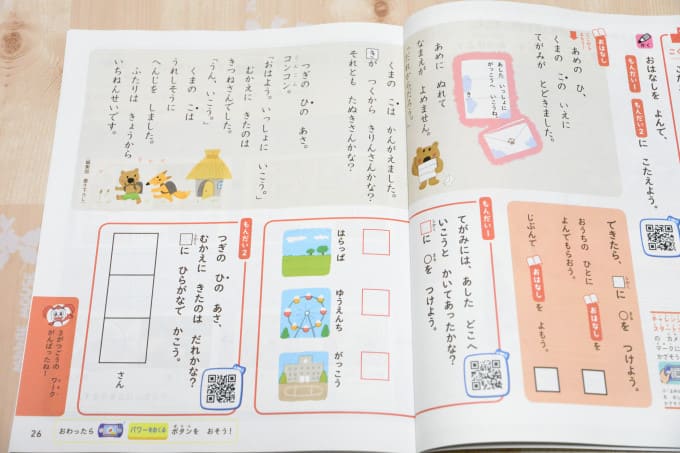 おはなしを よんで、
もんだい1 もんだい2 に こたえよう。
おはなし
あめの ひ、
くまの この いえに
てがみが とどきました。
あした いっしょに
がっこうへ いこうね。
あめに ぬれて
なまえが よめません。
くまの こは かんがえました。
きが つくから きりんさんかな?
それとも たぬきさんかな?
つぎの ひの あさ。
コンコン。
「おはよう。いっしょに いこう。」
むかえに きたのは
きつねさんでした。
「うん、いこう。」
くまの こは
うれしそうに
へんじを しました。
ふたりは きょうから
いちねんせいです。
できたら、□に ○を つけよう。
おうちの ひとに おはなし を
よんでもらおう。
じぶんで おはなし を よもう。
もんだい1
てがみには、あした どこへ
いこうと かいてあったかな?
□に ○を つけよう。
はらっぱ
ゆうえんち
がっこう
もんだい2
つぎの ひの あさ、
むかえに きたのは だれかな?
□に ひらがなで かこう。
さん
3がつごうの ワーク
がんばったね!
26
おわったら パワーをおくる ボタンを おそう!